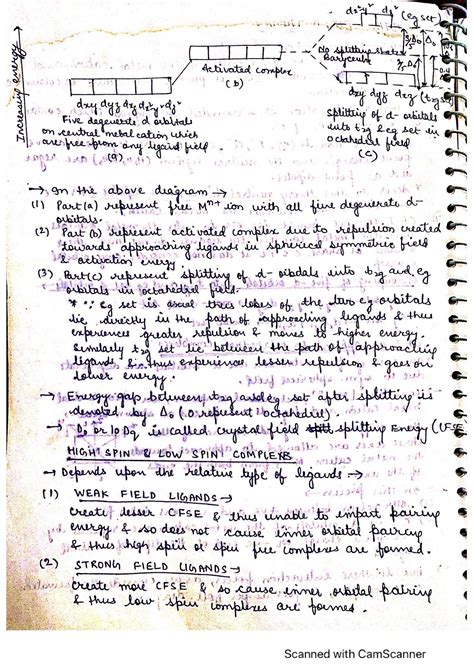 dx²y² dz² (eg set)
Increasing energy →
Activated complex
(b)
No splitting state
Barycentre
3/5 Δ₀
Δ₀
2/5 Δ₀
dxy dyz dxz (t₂g set)
splitting of d-orbitals
into t₂g & eg set in
octahedral field
(c)
Five degenerate d orbitals
on central metal cation which
are free from any ligand field.
(a)
→ In the above diagram →
(1) Part (a) represent free Mⁿ⁺ ion with all five degenerate d-
orbitals.
(2) Part (b) represent activated complex due to repulsion created
towards approaching ligands in spherical symmetric field
& activation energy.
(3) Part (c) represent splitting of d-orbitals into t₂g and eg
orbitals in octahedral field-
* ∵ eg set is axial thus lobes of the two eg orbitals
lie directly in the path of approaching ligands & thus
experiences greater repulsion & moves to higher energy.
Similarly t₂g set lie between the path of approaching
ligands & thus experience lesser repulsion & goes on
lower energy.
→ Energy gap between t₂g and eg set after splitting is
denoted by Δ₀ (0 represent octahedral).
→ Δ₀ or 10 Dq is called crystal field splitting Energy (CFSE
HIGH SPIN & LOW SPIN COMPLEXES
→ Depends upon the relative type of ligands →
(1) WEAK FIELD LIGANDS →
Create lesser CFSE & thus unable to impart pairing
energy & so does not cause inner orbital pairing
& thus high spin or spin free complexes are formed.
(2) STRONG FIELD LIGANDS →
Create more CFSE & so cause inner orbital pairing
& thus low spin complexes are formed.
Scanned with CamScanner